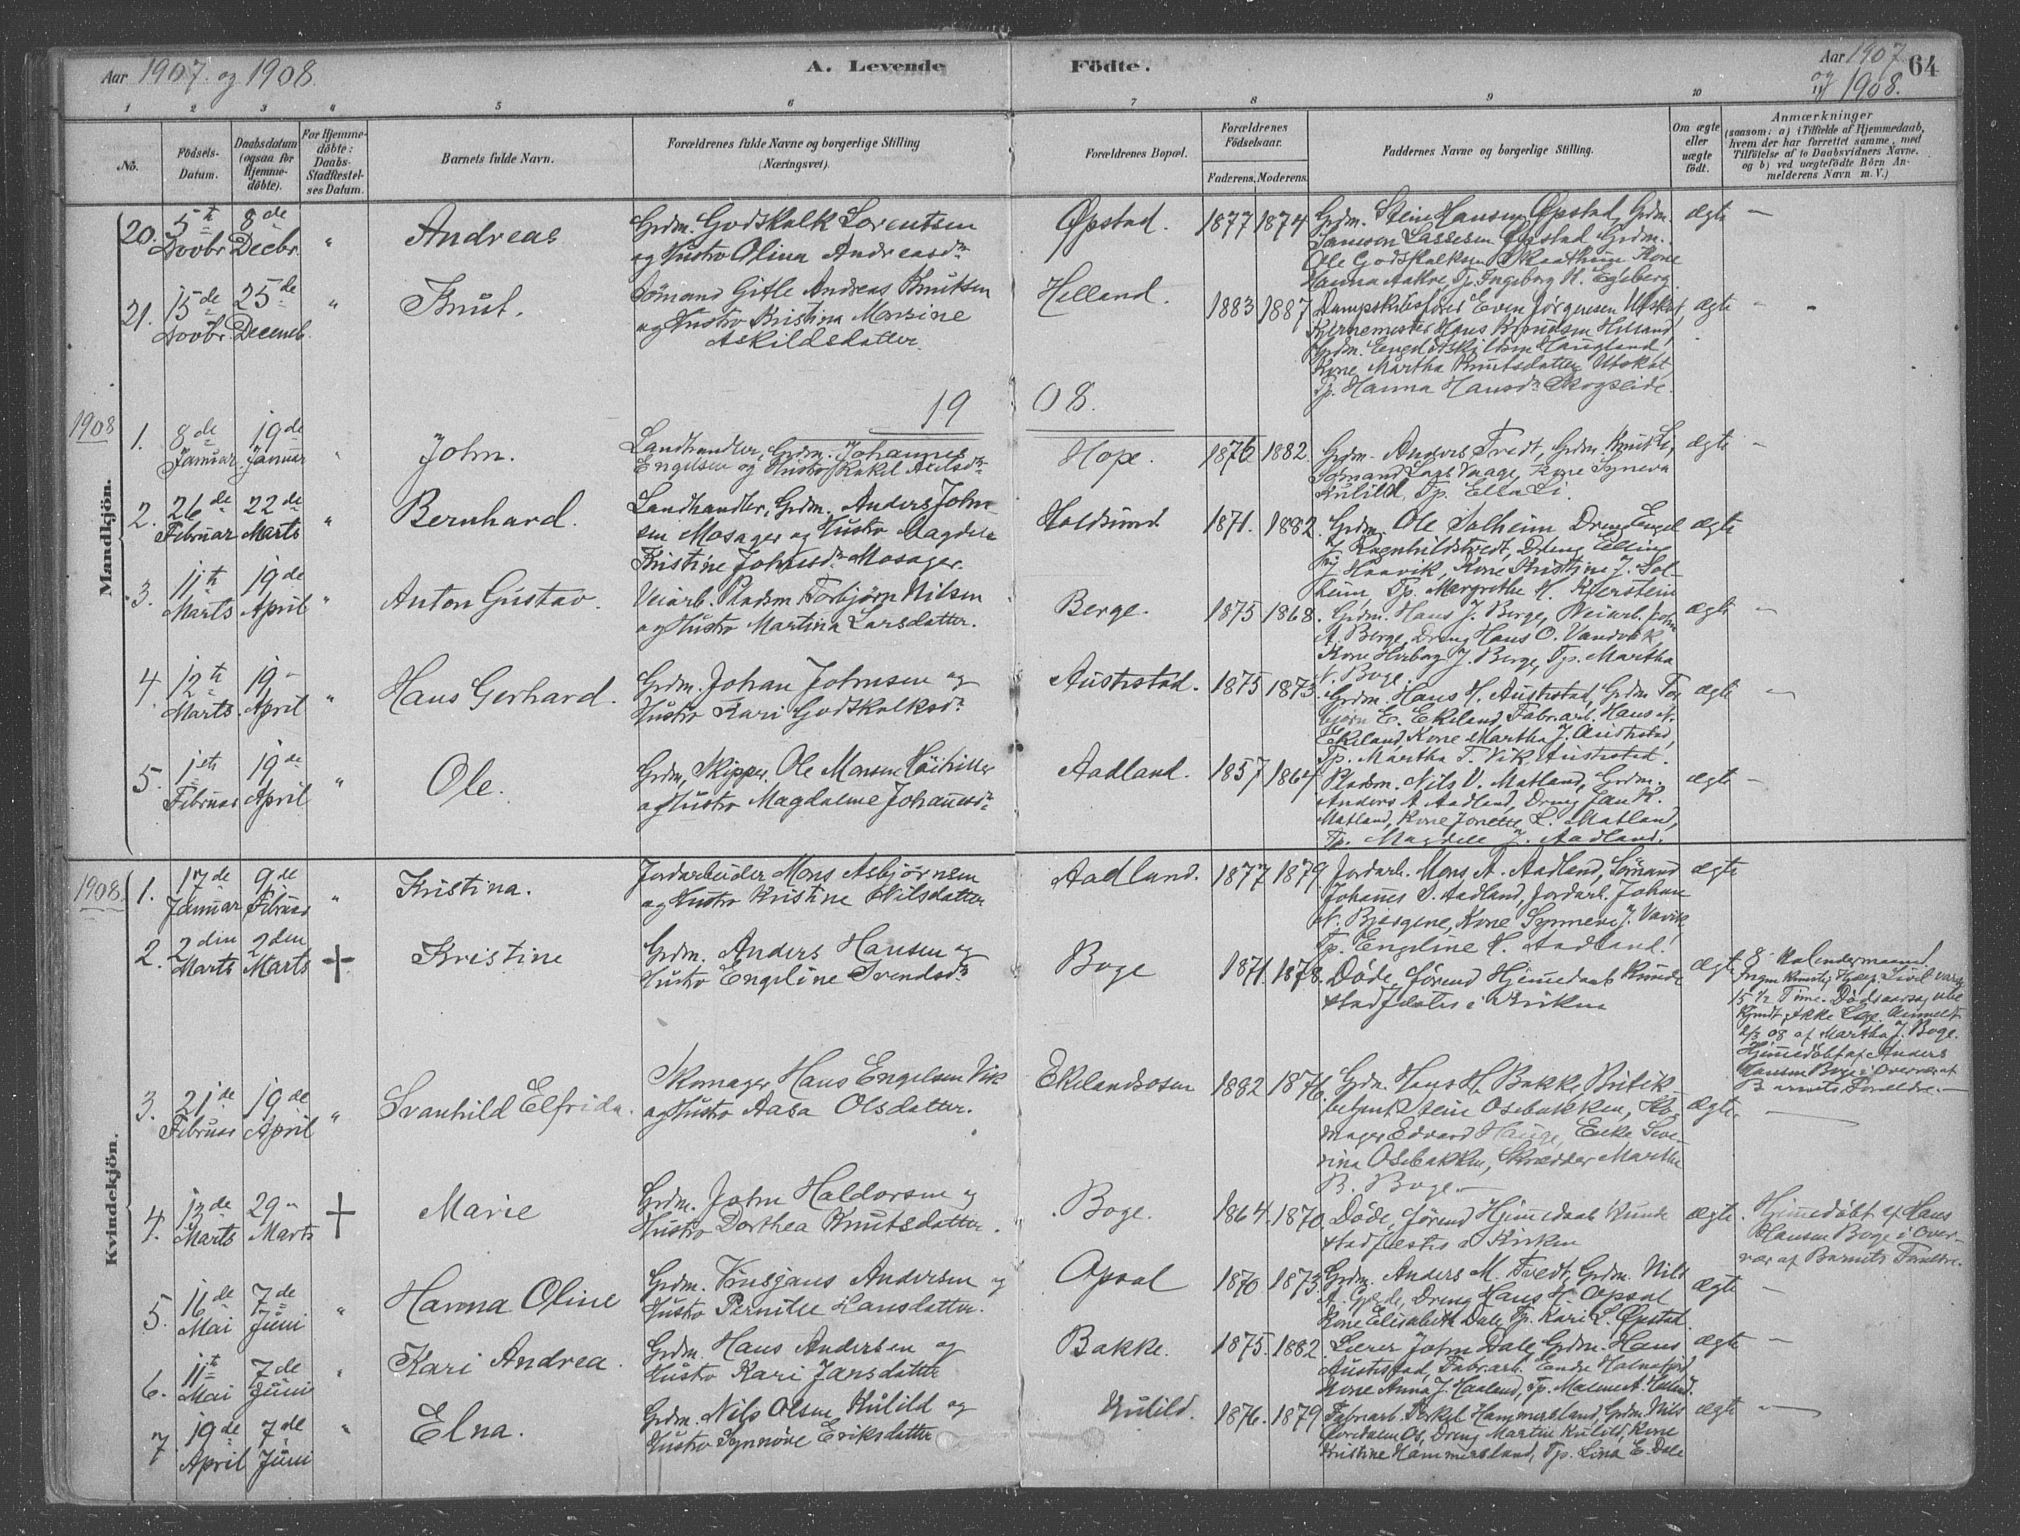 Aar 1907 og 1908.
A. Levende Födte.
Aar 1907 og 1908.
64
1 2 3 4 5 6 7 8 9 10
No.
Födsels-Datum.
Daabsdatum (ogsaa for Hjemme-döbte).
For Hjemme-döbte: Daabs-Stadfæstel-ses Datum.
Barnets fulde Navn.
Forældrenes fulde Navne og borgerlige Stilling (Næringsvei).
Forældrenes Bopæl.
Forældrenes Födselsaar.
Faderens. Moderens.
Faddernes Navne og borgerlige Stilling.
Om ægte eller uægte födt.
Anmærkninger
(saasom: a) i Tilfælde af Hjemmedaab,
hvem der har forrettet samme, med
Tilföielse af to Daabsvidners Navne.
og b) ved uægtefödte Börn An-
melderens Navn m. V.)
Mandkjön.
20. 5te Novbr. 8de Decbr. " Andreas
Grdm. Godskalk Lorentsen
og Hustro Olina Andreasdr.
Øpstad. 1877 1874
Grdm. Stein Hansen Øpstad, Grdm.
Ole Godskalksen Kone
Hanna Aakre Tp. Ingeborg H. Egeberg.
ægte —
21. 15de Novbr. 25de Decemb. " Knut.
Sömand Gitle Andreas Knutsen
og Hustro Kristina Marine
Askildsdatter.
Helland. 1883 1887
Dampskibsförer Even Jørgensen Utskot,
Hans Knudsen Helland,
Grdm. Engel Askildsen Haugland,
Kone Martha Knutsdatter Utskot,
Tp. Hanna Hansdr. Skogseide.
ægte -
1908.
1908
1. 8de Januar. 19de Januar " John.
Landhandler, Grdm. Johannes
Engelsen og Hustro Rakel Axelsdr.
Hope. 1876 1882.
Grdm. Anders Tvedt, Grdm. Knut Li,
Sömand Lars Vaage, Kone Synneva
Kulild, Tp. Ella Li.
ægte —
2. 26de Februar 22de Marts " Bernhard.
Landhandler, Grdm. Anders John-
sen Mosager og Hustro Magdela
Kristine Johnsdr. Mosager.
Holdsund 1871. 1882.
Grdm. Ole Solheim Dreng Engel
J. Ragnhildstvedt, Dreng Elling
J. Haavik, Kone Kristine J. Sol-
heim, Tp. Margrethe H. Kjerstein
ægte
3. 11te Marts 19de April " Anton Gustav.
Veiarb. Pladsm. Torbjørn Nilsen
og Hustro Martina Larsdatter.
Berge. 1875 1868.
Grdm. Hans J. Berge, Veiarb. John
A. Berge, Dreng Hans O. Vandvik,
Kone Herborg J. Berge, Tp. Martha
N. Boge.
ægte —
4. 12te Marts. 19" April " Hans Gerhard.
Grdm. Johan Johnsen og
Hustro Kari Godskalksdr.
Austistad. 1875 1873.
Grdm. Hans H. Austistad, Grdm. Tor-
björn E. Ekeland, Fabrarb. Hans N.
Ekeland, Kone Martha J. Austistad,
Tp. Martha T. Vik, Austistad.
ægte —
5. 1ste Februar 19de April " Ole.
Grdm. Skipper. Ole Monsen
og Hustro Magdalene Johannesdr.
Aadland. 1857 1864
Pladsm. Nils V. Matland, Grdm.
Anders A. Aadland, Dreng Jan K.
Matland, Kone Jonette L. Matland,
Tp. Magdele J. Aadland.
ægte —
Kvindekjön.
1908.
1. 17de Januar 9de Februar " Kristina.
Jordarbeider Mons Asbjørnsen
og Hustro Kristine Nilsdatter
Aadland. 1877 1879
Jordarb. Mons A. Aadland, Sömand
Johannes S. Aadland, Jordarb. Johan
N. Bjørgene, Kone Synneve J. Vavik
Tp. Engeline H. Aadland.
ægte
2. 2den Marts 2den Marts + Kristine
Grdm. Anders Hansen og
Hustro Engeline Svendsdr.
Boge 1871. 1878.
Döde, förend Hjemmedaab kunde
stadfæstes i Kirken
ægte
8 Kalendermaaned.
Ingen Kunstig Hjælp. Livet vare
15 1/2 Time. Dödsaarsag ube
kjendt, ikke Læge. Anmeldt
2/3 08 af Martha J. Boge.
Hjemmedöbt af Anders
Hansen Boge i Overvær af
Barnets Forældre. —
3. 21de Februar 19de April " Svanhild Elfrida.
Skomager Hans Engelsen Vik
og Hustro Aasa Olsdatter.
Ekelandsosen 1882 1876.
Grdm. Hans H. Bakke, Butik-
betjent Stein Osebakken, Sko-
mager Edvard Hauge, Enke Seve-
rina Osebakken, Skrædder Martha
B. Boge. —
ægte. —
4. 13de Marts 29" Marts + Marie
Grdm. John Haldorsen og
Hustro Dorthea Knutsdatter.
Boge. 1864. 1870.
Döde, förend Hjemmedaab kunde
stadfæstes i Kirken
ægte.
Hjemmedöbt af Hans
Hansen Boge i Over-
vær af Barnets Forældre.
5. 16de Mai 7de Juni " Hanna Oline
Grdm. Andersen og
Hustro Pernille Hansdatter.
Opsal 1870 1873.
Grdm. Anders M. Tvedt, Grdm. Nils
A. Gjerde, Dreng Hans H. Opsal
Kone Elisabeth Dale, Tp. Kari L. Øpstad.
ægte —
6. 11te Mai 7de Juni " Kari Andrea.
Grdm. Hans Andersen og
Hustro Kari Jansdatter
Bakke. 1875. 1882.
Lærer John Dale, Grdm. Hans
Austistad, Fabrarb. Endre Holmefjord,
Kone Anna J. Haaland, Tp.
ægte —
7 19de April 7de Juni " Elna.
Grdm. Nils Olsen Kulild og
Hustro Synnöve Eriksdatter
Kulild. 1876. 1879.
Fabrarb. Torkel Hammersland, Grdm. Nils
Os, Dreng Martin Kulild, Kone
Kristine Hammersland, Tp. Lina E. Dale
ægte —